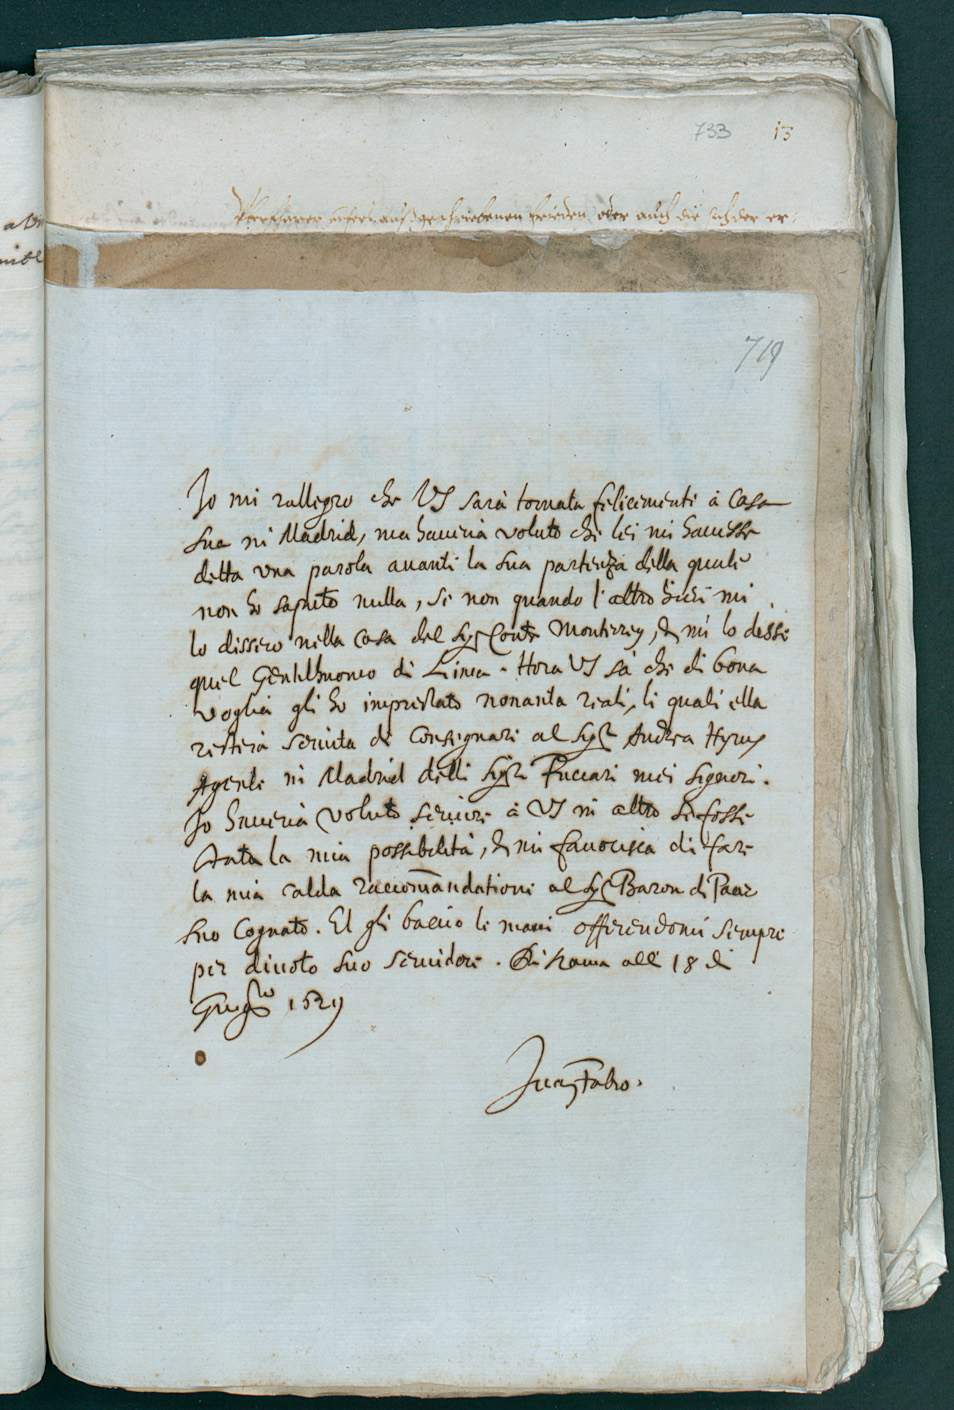 733 13
719
Io mi rallegro che VS sarà tornata felicementi à Casa
sua in Madrid, ma haueria voluto che lei mi hauesse
detta una parola auanti la sua partenza della quale
non ho saputo nulla, se non quando l'altro hieri mi
lo dissero nella casa del Sigr Conte Monterrey, & mi lo disse
quel Gentilhuomo di Linea. Hora VS sà che di bona
voglia gli ho imprestato nonanta reali, li quali ella
resterà seruita di Consegnare al Sigr Andrea Hyrus
Agente in Madrid delli Sigri Fuccari miei Signori.
Io haueria voluto seruire à VS in altro se fosse
stata la mia possibilità, & mi fauorisca di fare
la mia calda raccomandatione al Sigr Baron di Paar
suo Cognato. Et gli bacio le mani offerendomi sempre
per diuoto suo seruidore. Di Roma alli 18 di
Giugno 1629
Juan Fabro.